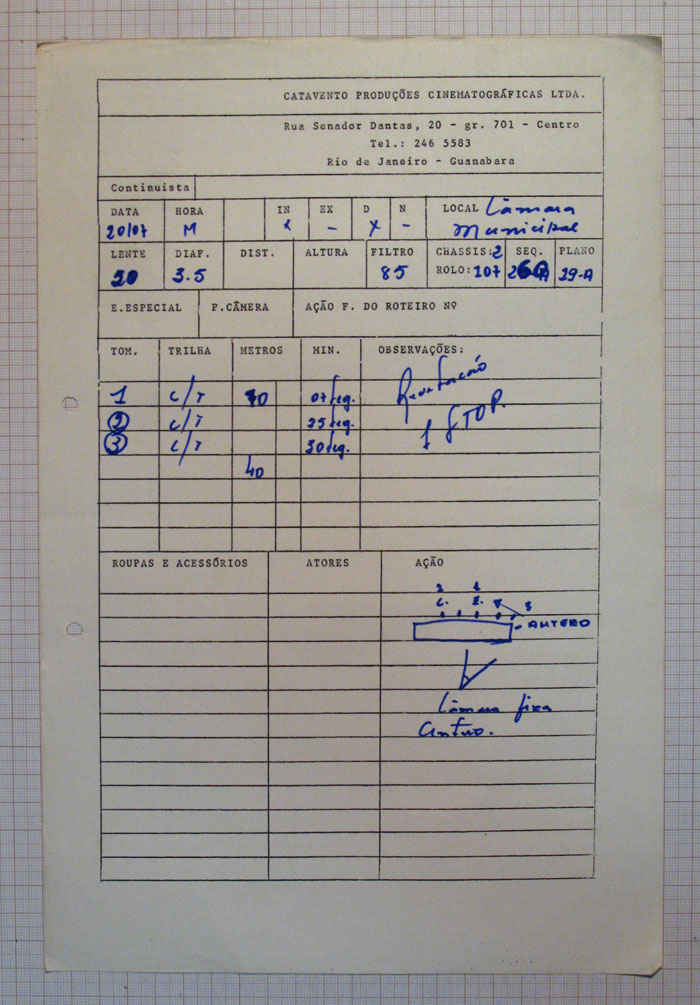 CATAVENTO PRODUÇÕES CINEMATOGRÁFICAS LTDA.
Rua Senador Dantas, 20 - gr. 701 - Centro
Tel.: 246 5583
Rio de Janeiro - Guanabara
Continuista
DATA HORA IN EX D N LOCAL Câmara
20/07 M x - x - Municipal
LENTE DIAF. DIST. ALTURA FILTRO CHASSIS: 2 SEQ. PLANO
20 3.5 85 ROLO: 107 29-A
E.ESPECIAL P.CÂMERA AÇÃO F. DO ROTEIRO Nº
TOM. TRILHA METROS MIN. OBSERVAÇÕES:
1 C/T 07 seg.
2 C/T 25 seg. 1 STOP.
3 C/T 30 seg.
40
ROUPAS E ACESSÓRIOS ATORES AÇÃO
ANTERO
Câmara fixa
Centro.